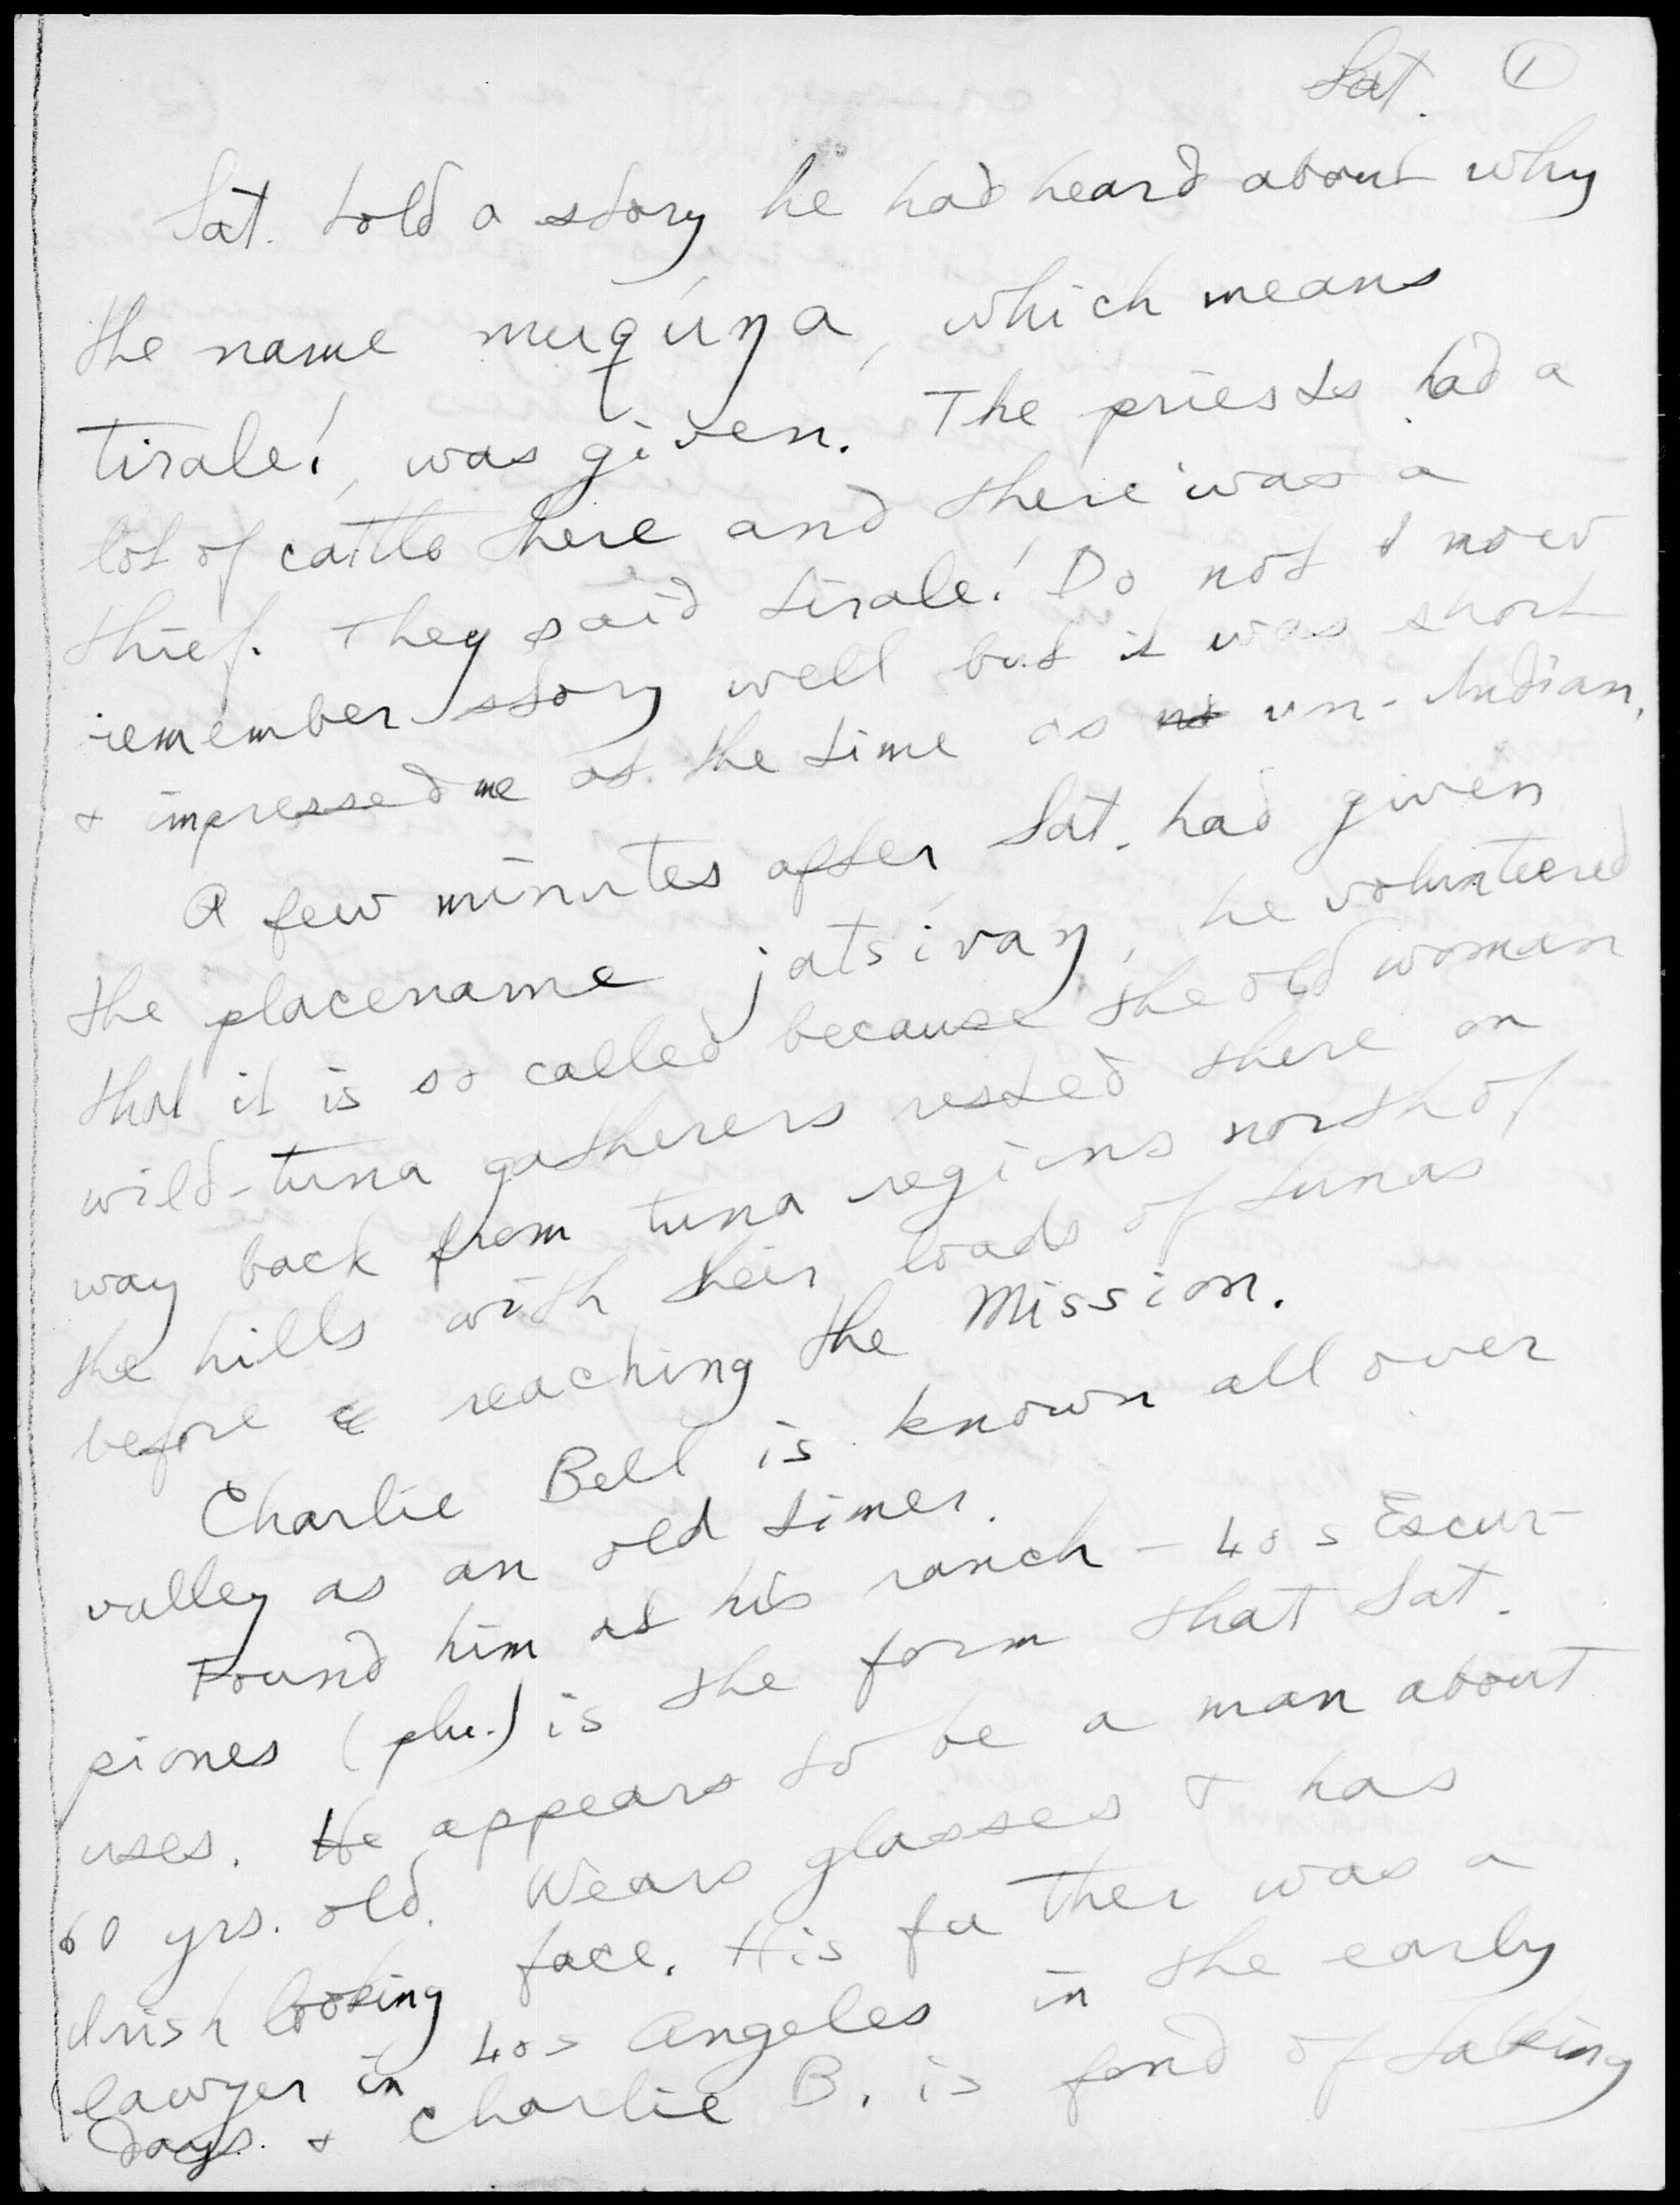 Sat. ①
Sat. told a story he had heard about why
the name muqúŋa, which means
tirale!, was given. The priests had a
lot of cattle there and there was a
thief. They said tirale! Do not now
remember story well but it was short
& impressed me at the time as un-Indian.
A few minutes after Sat. had given
the placename jatsívaŋ, he volunteered
that it is so called because the old woman
wild-tuna gatherers rested there on
way back from tuna regions north of
the hills with their loads of tunas
before reaching the Mission.
Charlie Bell is known all over
valley as an old timer.
Found him at his ranch – Los Escur-
piones (plu.) is the form that Sat.
uses. He appears to be a man about
60 yrs. old. Wears glasses & has
Irish looking face. His father was a
lawyer in Los Angeles in the early
days & Charlie B. is fond of taking